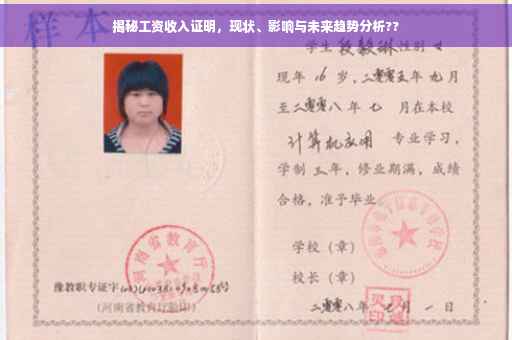 揭秘工资收入证明，现状、影响与未来趋势分析??
样本
学生 段毅琳 性别 女
现年 16 岁，二零零五年 九月
至二零零八年 七 月在本校
计算机应用 专业学习，
学制 三 年，修业期满，成绩
合格，准予毕业
学校（章）
校长（章）
二零零八年 月 一 日
河南省教育厅
豫教职专证字
（河南省教育厅验印）